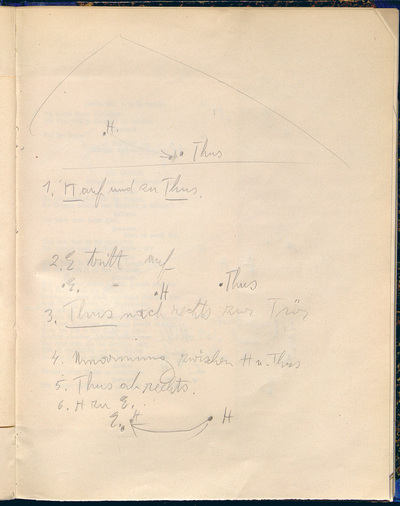 H.
Thus
1. H auf und zu Thus.
2. E. tritt auf
E. H Thus
3. Thus nach rechts zur Tür
4. Umarmung zwischen H u. Thus
5. Thus ab rechts.
6. H zu E.
E. H H